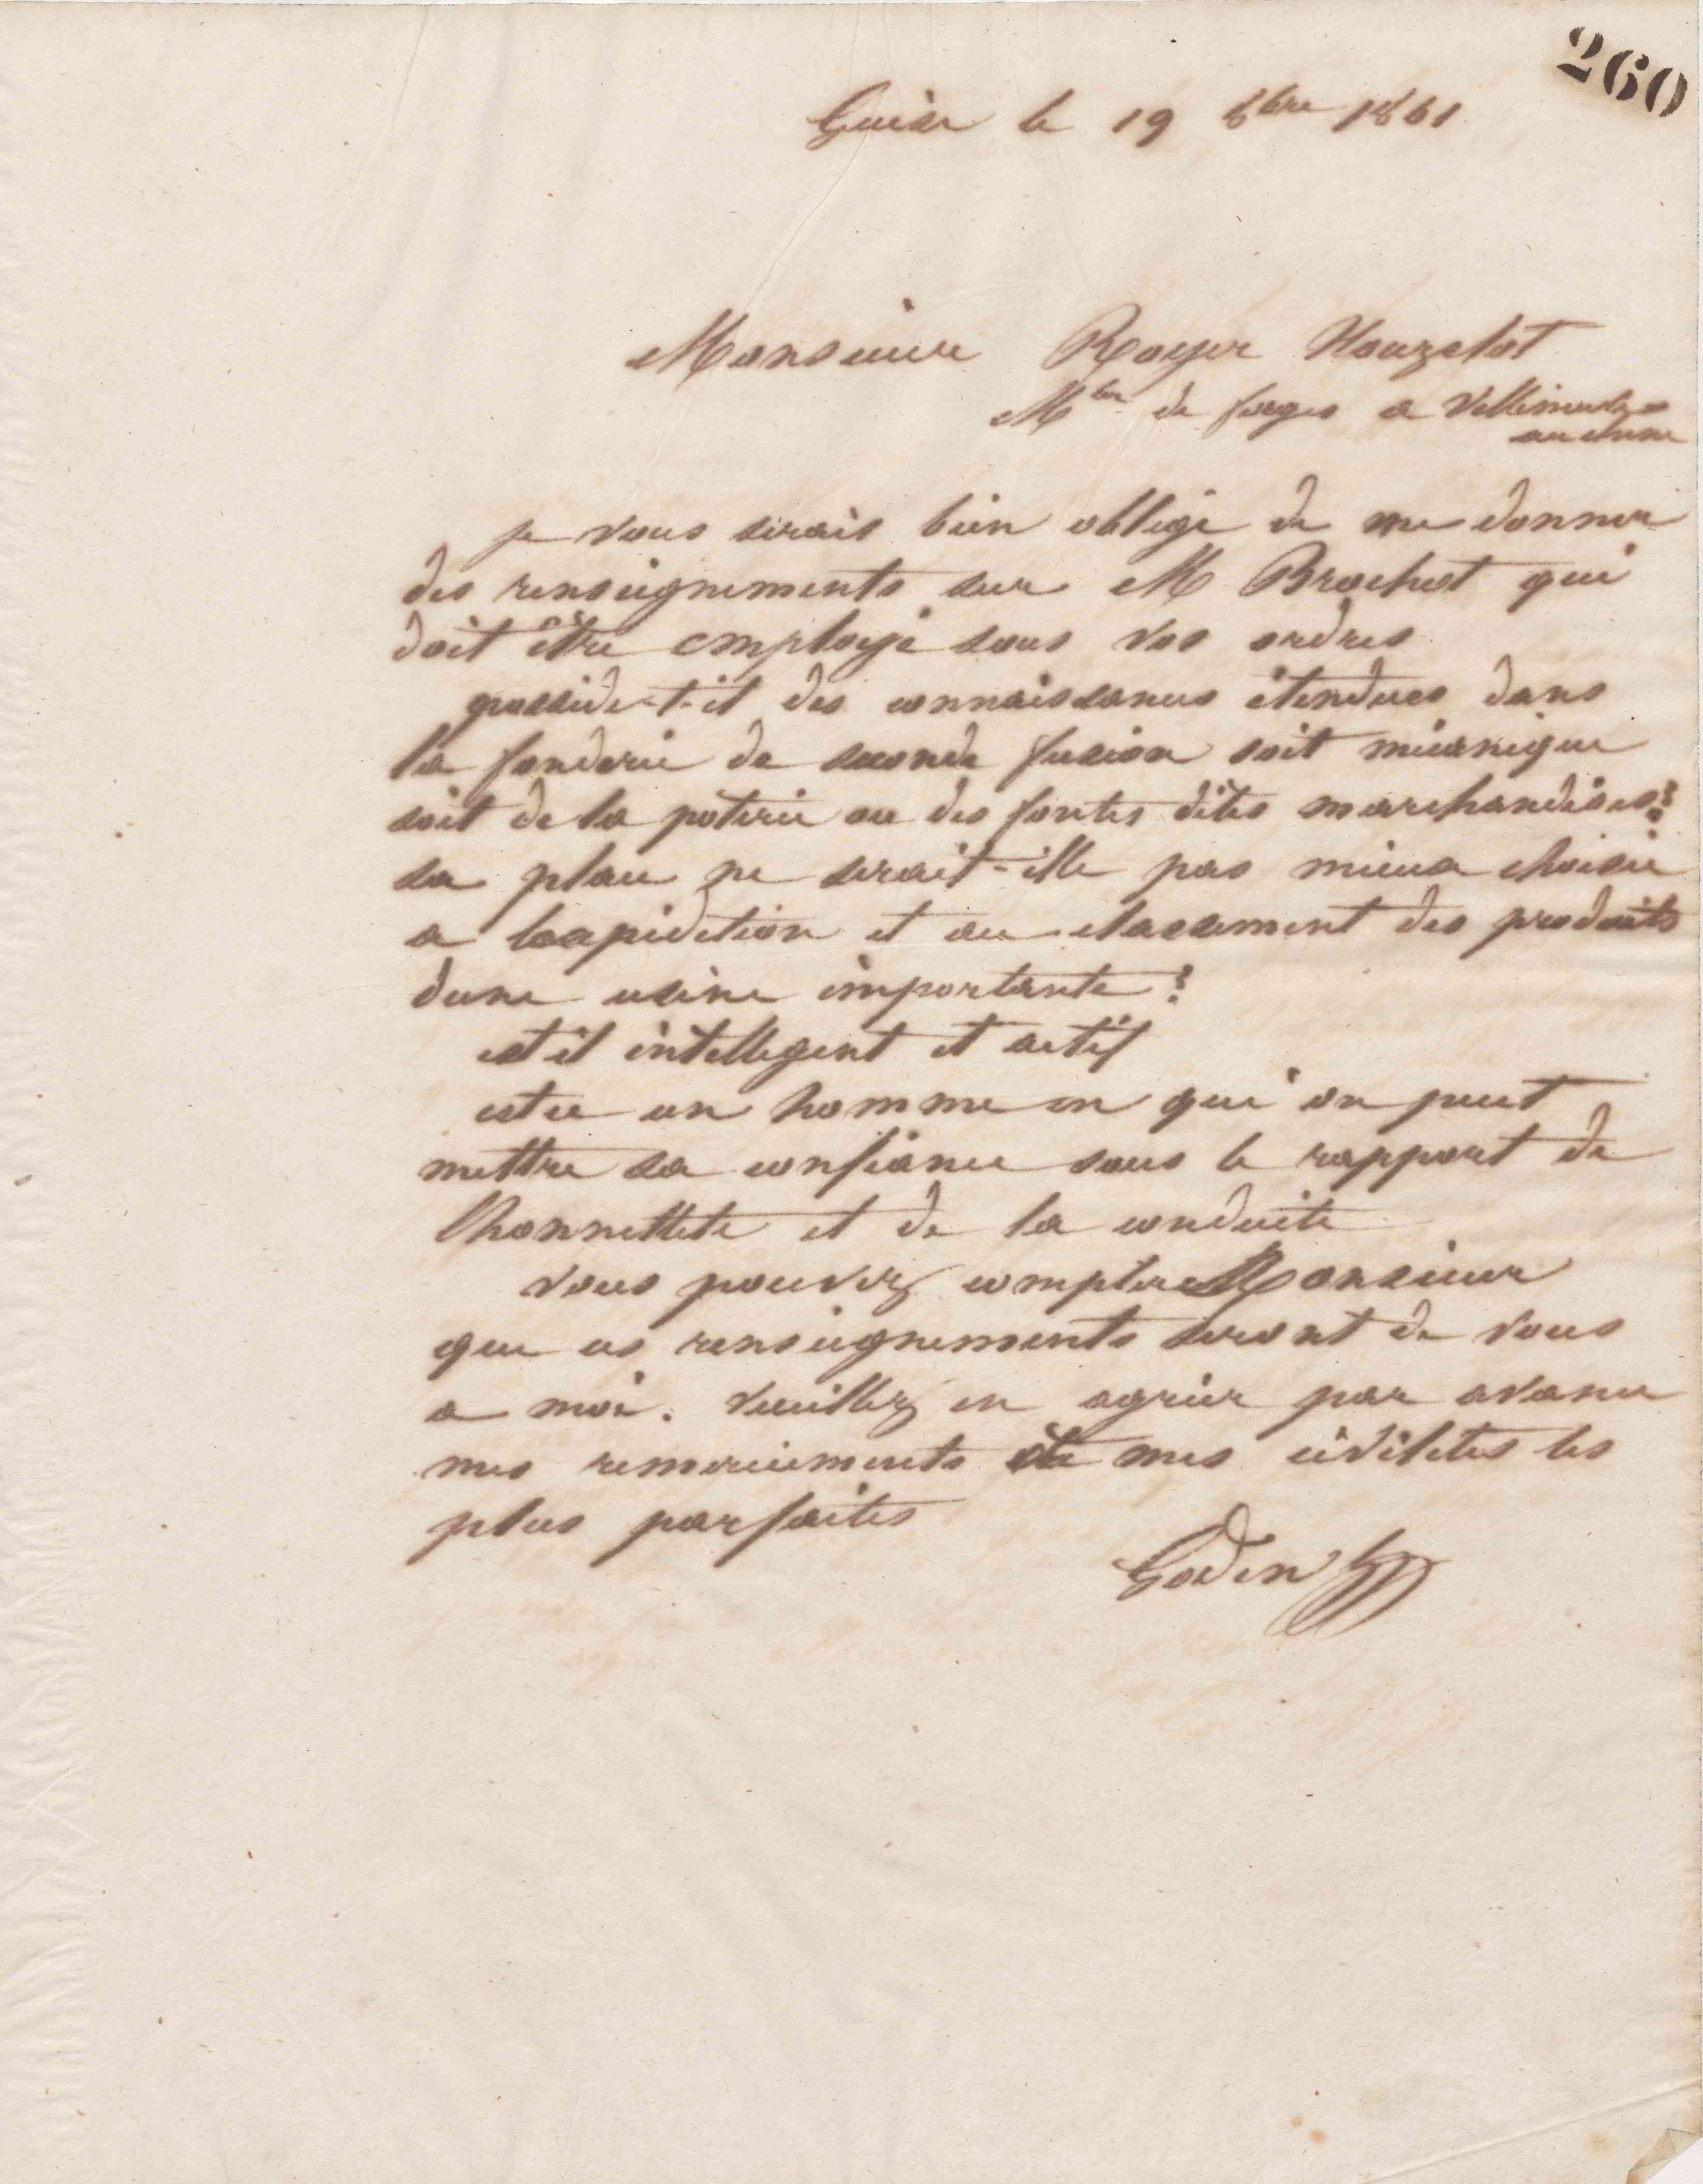 260
Guise le 19 8bre 1861
Monsieur Royer Houzelot
Mtre de forges a
je vous serais bien obligé de me donner
des renseignements sur M Brochet qui
doit être employé sous vos ordres
possède-t-il des connaissances étendues dans
la fonderie de seconde fusion soit mécanique
soit de la poterie ou des fontes dites marchandises?
sa place ne serait-elle pas mieux choisie
a lexpidition et au classement des produits
dune usine importante?
est il intelligent et actif
estce un homme en qui on peut
mettre sa confiance sous le rapport de
lhonnetteté et de la conduite
vous pouvez compter Monsieur
que ces renseignements seront de vous
a moi. Veuillez en agréer par avance
mes remerciements et mes civilités les
plus parfaites
Godin